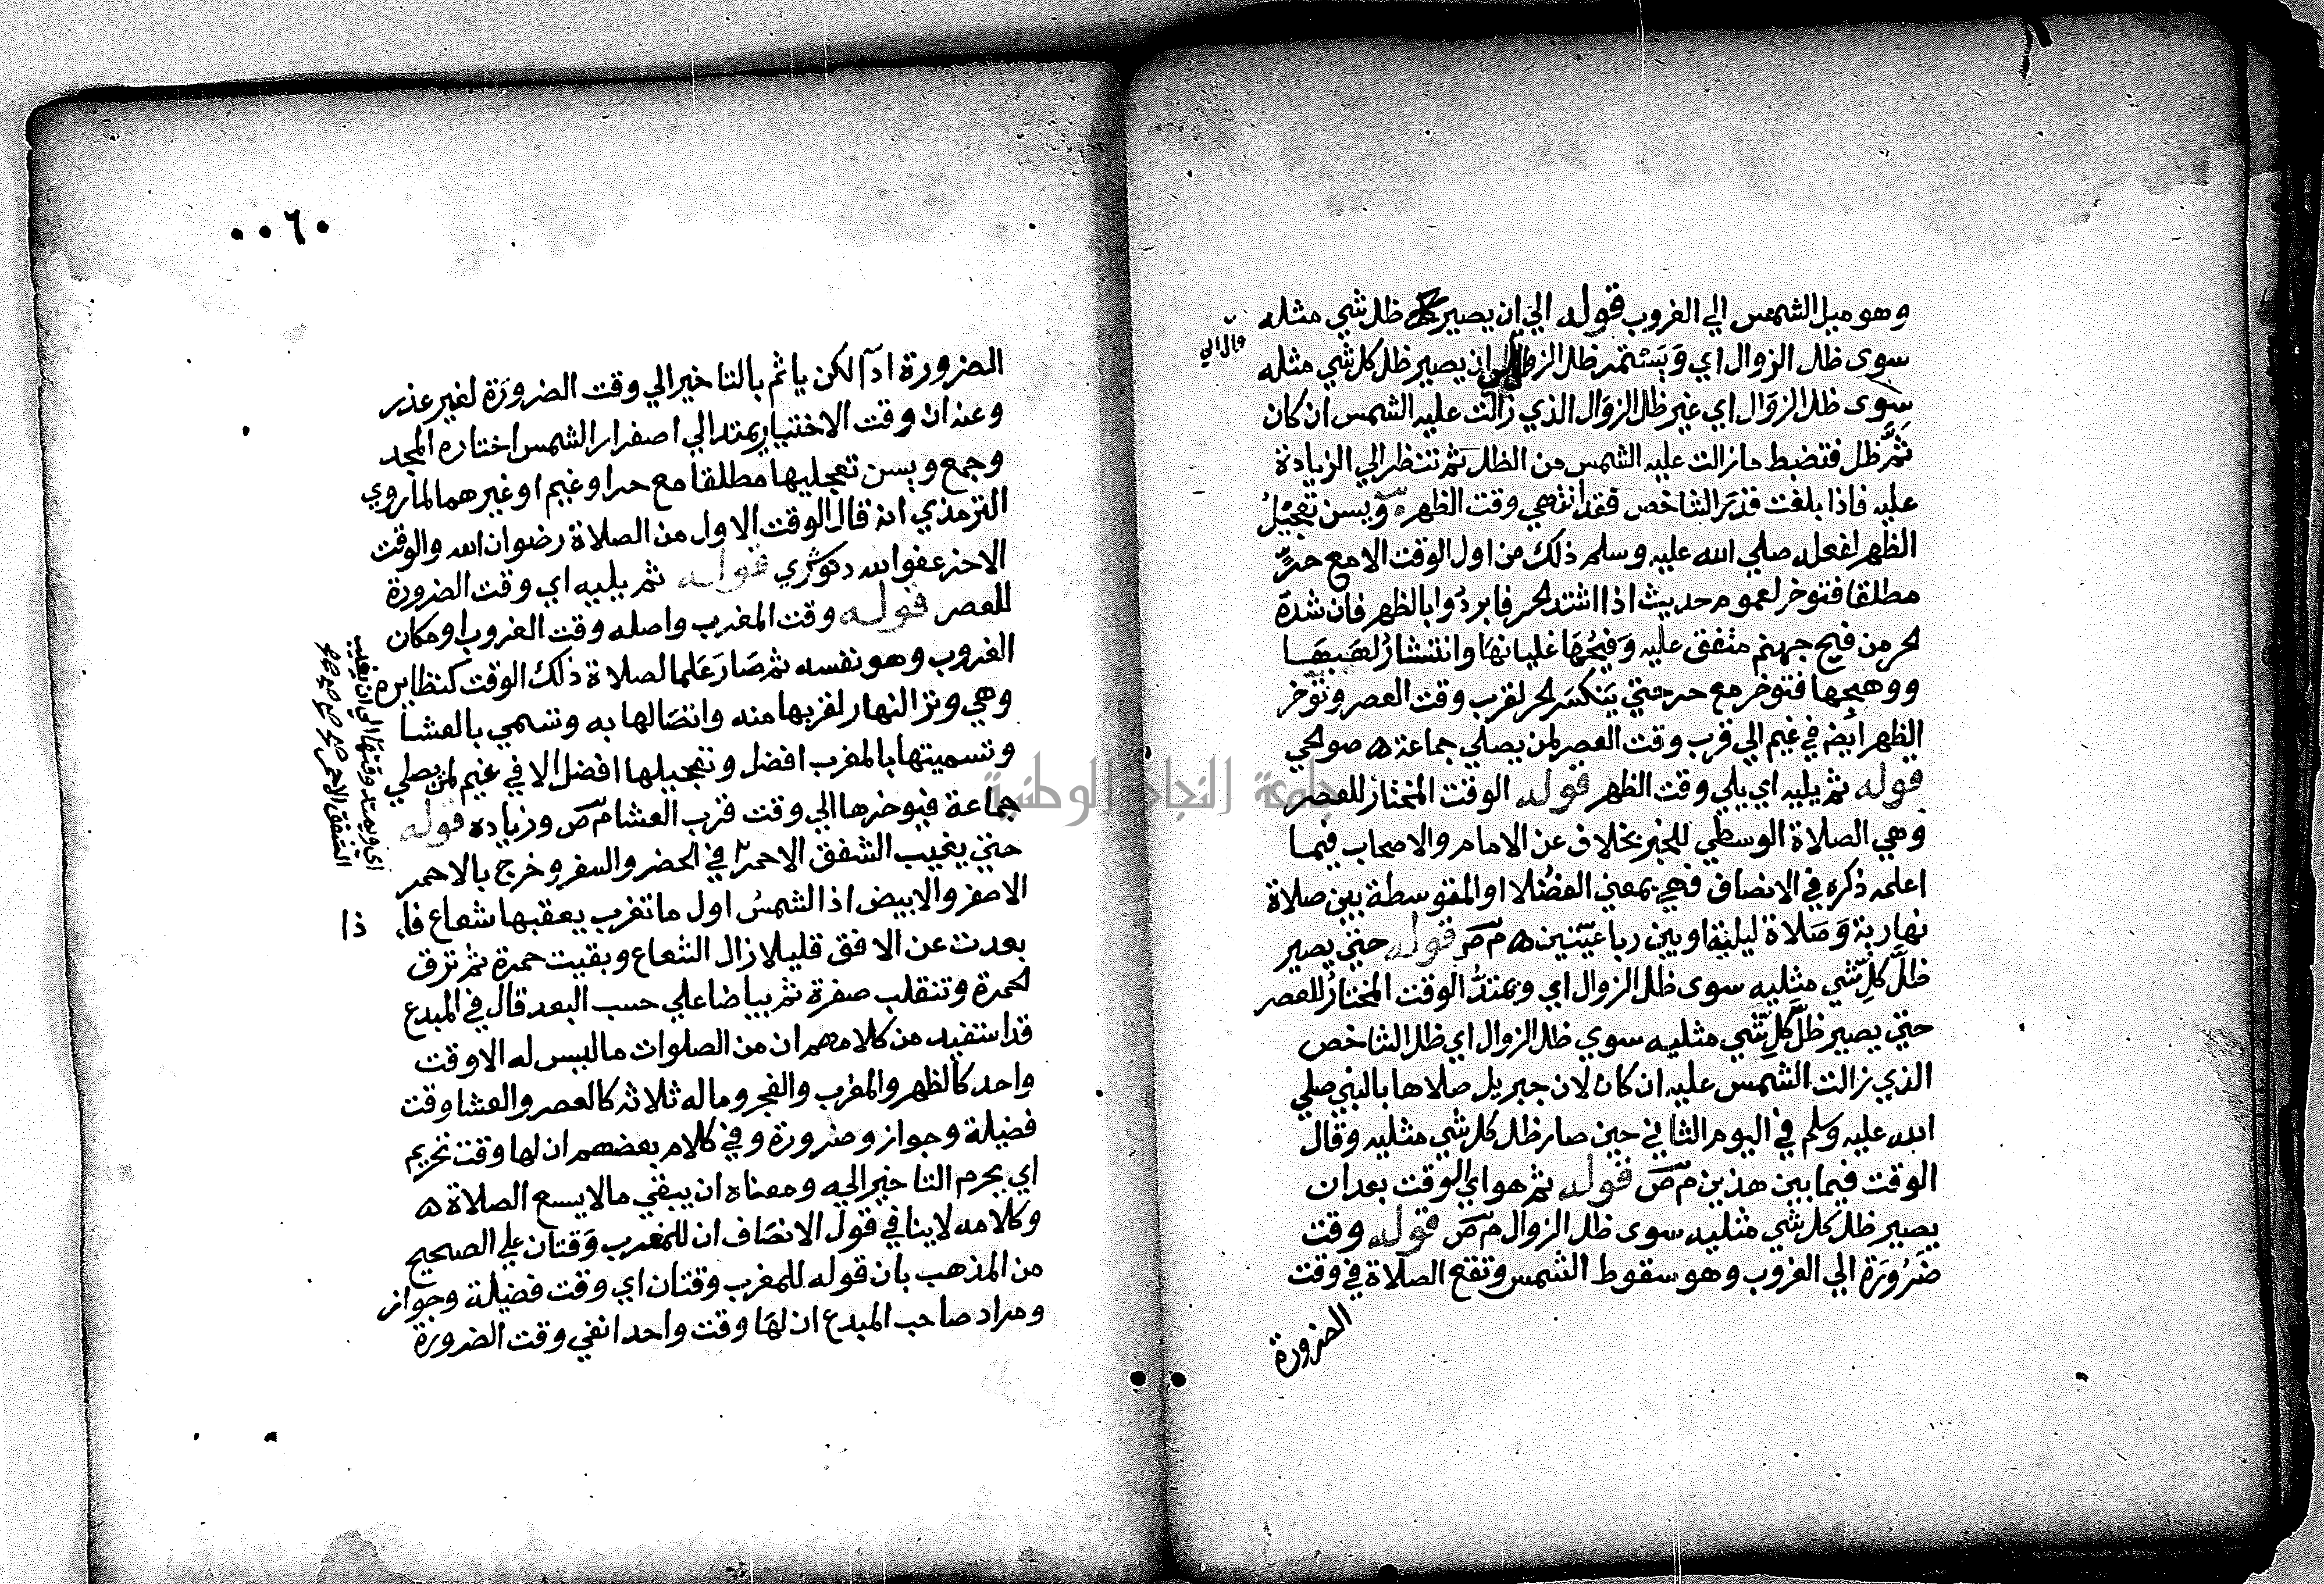 وهو ميل الشمس الي الغروب قوله الي ان يصير ظل شي مثله
سوى ظل الزوال اي ويستمر ظل الزوال الي ان يصير ظل كل شي مثله
وال الي
سوى ظل الزوال اي غير ظل الزوال الذي زالت عليه الشمس ان كان
ثم ظل فتضبط ما زالت عليه الشمس من الظل ثم تنظر الي الزيادة
عليه فاذا بلغت قدر الشاخص فقد انتهي وقت الظهر ويسن تعجيل
الظهر لفعله صلي الله عليه وسلم ذلك من اول الوقت الا مع حر
مطلقا فتوخر لعموم حديث اذا اشتد الحر فابردوا بالظهر فان شدة
الحر من فيح جهنم متفق عليه وفيحها غليانها وانتشار لهبها
ووهجها فتوخر مع حر حتي ينكسر الحر لقرب وقت العصر وتوخر
الظهر ايضا في غيم الي قرب وقت العصر لمن يصلي جماعة ه صوالحي
قوله ثم يليه اي يلي وقت الظهر قوله الوقت المختار للعصر
وهي الصلاة الوسطي للخبر بخلاف عن الامام والاصحاب فيما
اعلمه ذكره في الانصاف فهي بمعني الفضلا او المتوسطة بين صلاة
نهارية وصلاة ليلية او بين رباعيتين ه م ص قوله حتي يصير
ظل كل شي مثليه سوى ظل الزوال اي ويمتد الوقت المختار للعصر
حتي يصير ظل كل شي مثليه سوي ظل الزوال اي ظل الشاخص
الذي زالت الشمس عليه ان كان لان جبريل صلاها بالنبي صلي
الله عليه وسلم في اليوم الثاني حين صار ظل كل شي مثليه وقال
الوقت فيما بين هذين م ص قوله ثم هو اي الوقت بعد ان
يصير ظل كل شي مثليه سوى ظل الزوال م ص قوله وقت
ضرورة الي الغروب وهو سقوط الشمس وتقع الصلاة في وقت
الضرورة
٠٠٦٠
الضرورة ادآ لكن ياثم بالتاخير الي وقت الضرورة لغير عذر
وعنه ان وقت الاختيار يمتد الي اصفرار الشمس اختاره المجد
وجمع ويسن تعجيلها مطلقا مع حر او غيم او غيرهما لما روي
الترمذي انه قال الوقت الاول من الصلاة رضوان الله والوقت
الاخر عفو الله دنوشري قوله ثم يليه اي وقت الضرورة
للعصر قوله وقت المغرب واصله وقت الغروب او مكان
الغروب وهو نفسه ثم صار علما لصلاة ذلك الوقت كنظايره
وهي وتر النهار لقربها منه واتصالها به وتسمي بالعشا
وتسميتها بالمغرب افضل وتعجيلها افضل الا في غيم لمن يصلي
جماعة فيوخرها الي وقت قرب العشا م ص وزياده قوله
حتي يغيب الشفق الاحمر في الحضر والسفر وخرج بالاحمر
اي ويمتد وقتها الي ان يغيب
الشفق الاحمر صح صح صح
الاصفر والابيض اذ الشمس اول ما تغرب يعقبها شعاع فا ذا
بعدت عن الافق قليلا زال الشعاع وبقيت حمرة ثم ترق
الحمرة وتنقلب صفرة ثم بياضا علي حسب البعد قال في المبدع
قد استفيد من كلامهم ان من الصلوات ما ليس له الا وقت
واحد كالظهر والمغرب والفجر وما له ثلاثه كالعصر والعشا وقت
فضيلة وجواز وضرورة وفي كلام بعضهم ان لها وقت تحريم
اي يحرم التاخير اليه ومعناه ان يبقي ما لا يسع الصلاة ه
وكلامه لا ينافي قول الانصاف ان للمغرب وقتان علي الصحيح
من المذهب بان قوله للمغرب وقتان اي وقت فضيلة وجواز
ومراد صاحب المبدع ان لها وقت واحد انفي وقت الضرورة
جامعة النجاح الوطنية